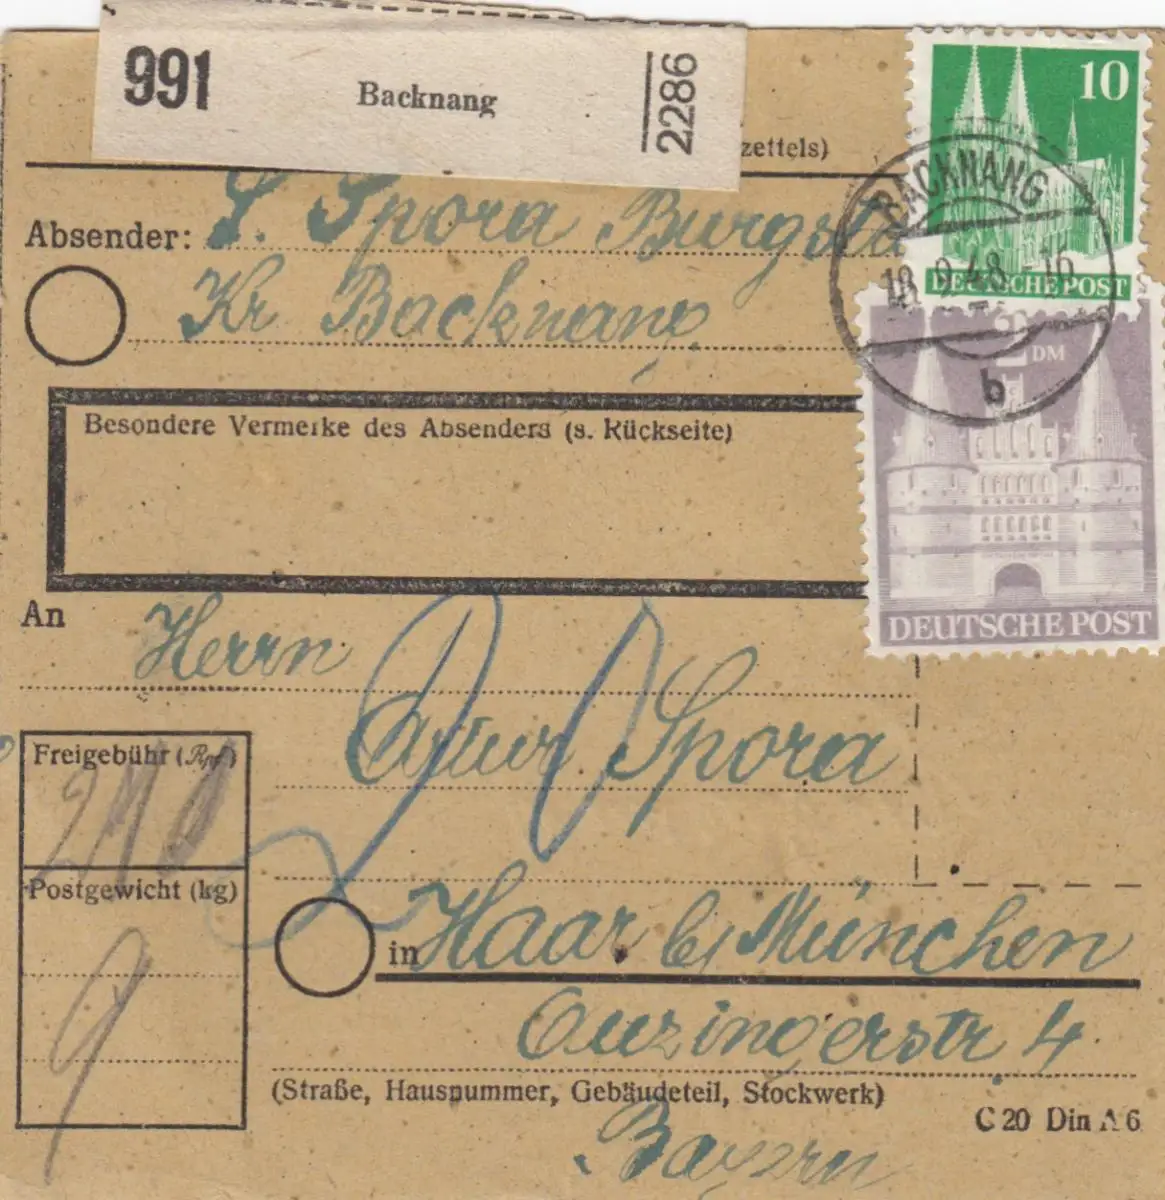 991 Backnang 2286
zettels)
10
DEUTSCHE POST
BACKNANG
18.9.48.-16
b
2 DM
DEUTSCHE POST
Absender: S. Spora Burgsta
Kr Backnang
Besondere Vermerke des Absenders (s. Rückseite)
An Herrn
Artur Spora
Freigebühr (Rpf)
210
Postgewicht (kg)
9
20
in Haar b/ München
Auzingerstr 4
(Straße, Hausnummer, Gebäudeteil, Stockwerk)
C 20 Din A 6
Bayern